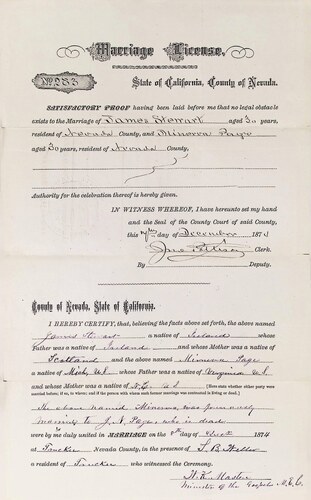 Marriage License.
No. 233
State of California, County of Nevada.
SATISFACTORY PROOF having been laid before me that no legal obstacle
exists to the Marriage of James Stewart aged 30 years,
resident of Nevada County, and Minerva Payo
aged 30 years, resident of Nevada County,
Authority for the celebration thereof is hereby given.
IN WITNESS WHEREOF, I have hereunto set my hand
and the Seal of the County Court of said County,
this 7th day of December 1874
Clerk.
By Deputy.
County of Nevada, State of California.
I HEREBY CERTIFY, that, believing the facts above set forth, the above named
James Stewart a native of Ireland whose
Father was a native of Ireland and whose Mother was a native of
Scotland and the above named Minerva
a native of Mich, US whose Father was a native of Virginia US
and whose Mother was a native of N.C. US [Here state whether either party were
married before; if so, to whom; and if the person with whom such former marriage was contracted is living or dead.]
The above named Minerva, was previously
married to J.A. who is dead
were by me duly united in MARRIAGE on the day of 1874
at Truckee Nevada County, in the presence of
a resident of Truckee who witnessed the Ceremony.
Minister of the Gospel M.E.C.